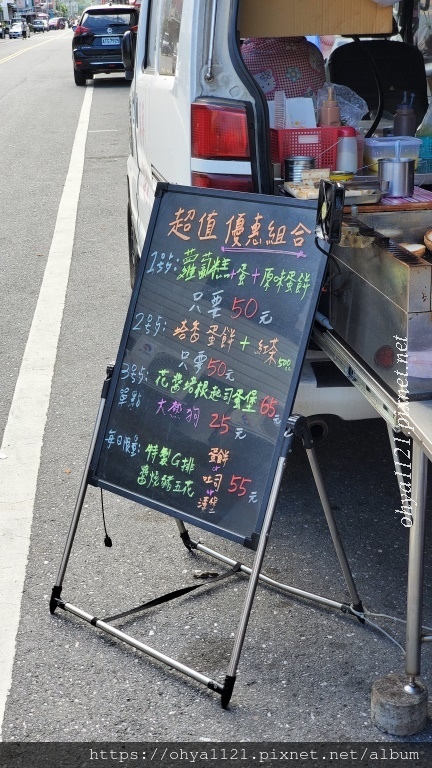 超值優惠組合
1號:蘿蔔糕+蛋+原味蛋餅
只要50元
2號:培香蛋餅+紅茶500c
只要50元
3號:花醬培根起司蛋堡65元
單點 大熱狗 25元
每日限量: 特製G排 蛋餅
or
醬燒豬五花 吐司 55元
or
漢堡
ohya1121.pixnet.net
https://ohya1121.pixnet.net/album